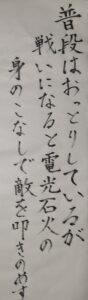 普段はおっとりしているが
戦いになると電光石火の
身のこなしで敵を叩きのめす